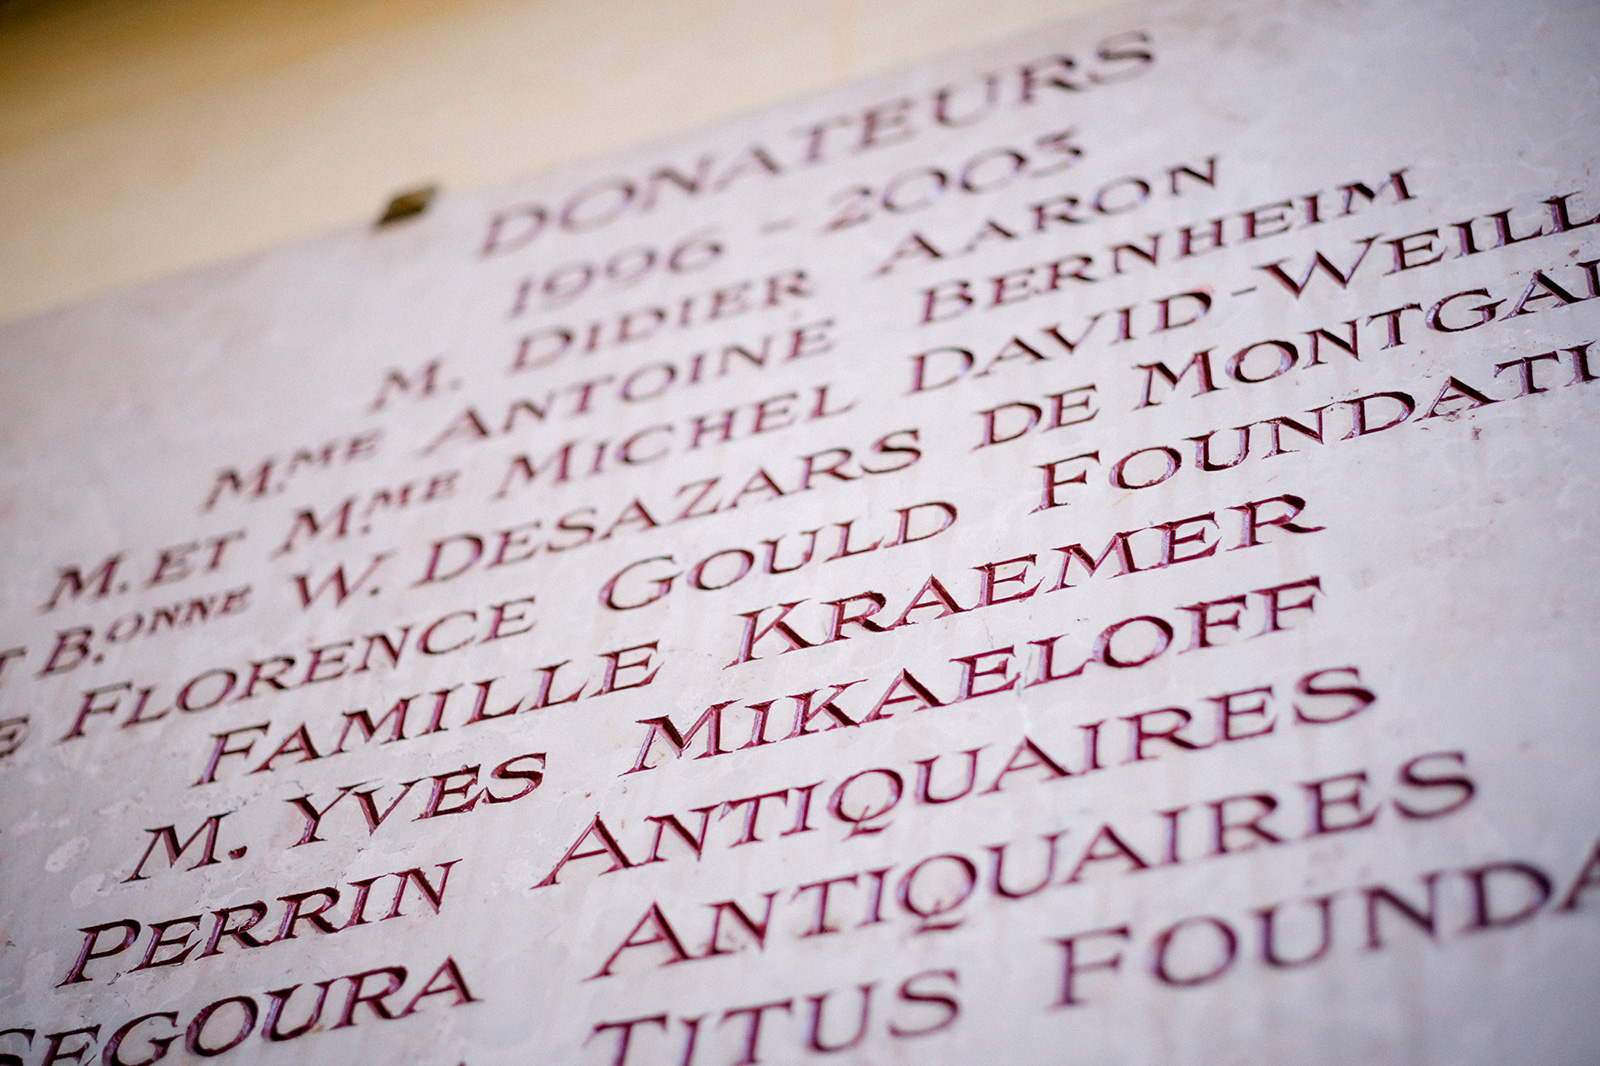 DONATEURS
1996 - 2003
M. DIDIER AARON
M.ME ANTOINE BERNHEIM
M. ET M.ME MICHEL DAVID-WEILL
B.ONNE W. DESAZARS DE MONTGAI
FLORENCE GOULD FOUNDATI
FAMILLE KRAEMER
M. YVES MIKAELOFF
PERRIN ANTIQUAIRES
SEGOURA ANTIQUAIRES
TITUS FOUNDA